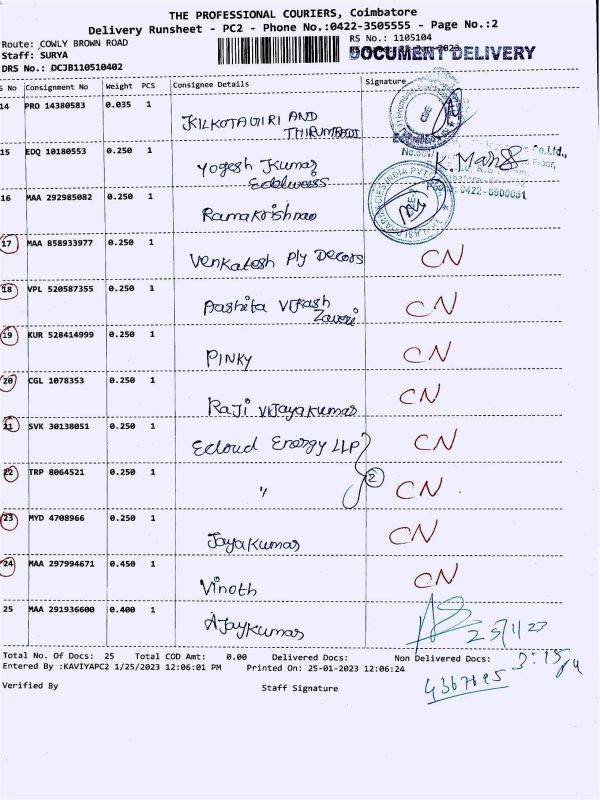 THE PROFESSIONAL COURIERS, Coimbatore
Delivery Runsheet - PC2 - Phone No.:0422-3505555 - Page No.:2
Route: COWLY BROWN ROAD RS No.: 1105104
Staff: SURYA DOCUMENT DELIVERY
DRS No.: DCJB110510402
S No Consignment No Weight PCS Consignee Details Signature
14 PRO 14380583 0.035 1 KILKOTAGIRI AND
THIRUMBADI
15 EDQ 10180553 0.250 1 Yogesh Kumar
Edelweiss
Co.Ltd.,
Floor,
16 MAA 292985082 0.250 1 Ramakrishnan
17 MAA 858933977 0.250 1 Venkatesh Ply Decors CN
18 VPL 520587355 0.250 1 Aashita Vikash CN
Zaveri
19 KUR 528414999 0.250 1 PINKY CN
20 CGL 1078353 0.250 1 Raji Vijayakumar CN
21 SVK 30138051 0.250 1 Ecloud Energy LLP CN
22 TRP 8064521 0.250 1 " 2 CN
23 MYD 4708966 0.250 1 Jayakumar CN
24 MAA 297994671 0.450 1 Vinoth CN
25 MAA 291936600 0.400 1 Ajaykumar
Total No. Of Docs: 25 Total COD Amt: 0.00 Delivered Docs: Non Delivered Docs:
Entered By :KAVIYAPC2 1/25/2023 12:06:01 PM Printed On: 25-01-2023 12:06:24
Verified By Staff Signature